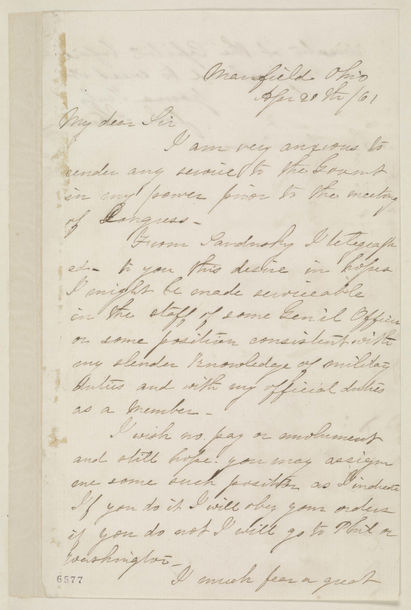 Mansfield Ohio
Apr 28th/61
My dear Sir
I am very anxious to
render any service to the Govent
in my power prior to the meeting
of Congress -
From Sandusky I telegraph
ed to you this desire in hopes
I might be made serviceable
in the staff of some Gen'l Officer
or some position consistent with
my slender knowledge of military
duties and with my official duties
as a Member -
I wish no pay or emolument
and still hope you may assign
me some such position as I indicate
If you do it I will obey your orders
if you do not I will go to Phil or
Washington -
I much fear a great
6577